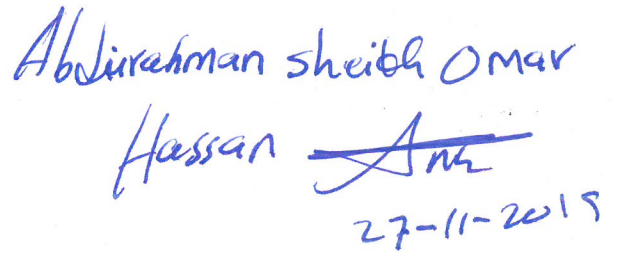 Abdurahman sheikh Omar
Hassan
27-11-2019